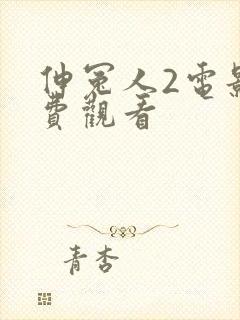 伸冤人2電影
費觀看
青杏